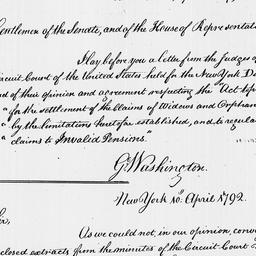 Gentlemen of the Senate, and of the House of Representat
I lay before you a Letter from the Judges of
Circuit Court of the United States held for the New York D
of their opinion and agreement respecting the "Act
"for the settlement of the Claims of Widows and Orphan
"by the limitations heretofore established, and to regulat
"claims to Invalid Pensions."
G. Washington.
New York 10. April 1792.
Sir,
As we could not, in our opinion, conv
closed extracts from the minutes of the Circuit Court